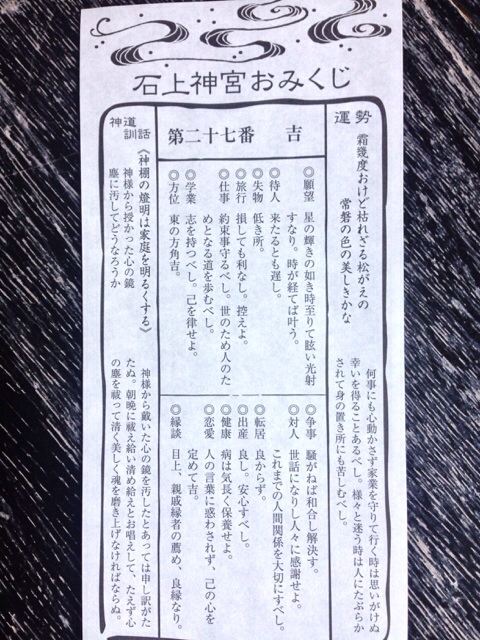 石上神宮おみくじ
運勢
霜幾度おけど枯れざる松がえの
常磐の色の美しきかな
何事にも心動かさず家業を守りて行く時は思いがけぬ
幸いを得ることあるべし。様々と迷う時は人にたぶらか
されて身の置き所にも苦しむべし。
第二十七番 吉
◎願望 星の輝きの如き時至りて眩い光射
すなり。時が経てば叶う。
◎待人 来たるとも遅し。
◎失物 低き所。
◎旅行 損しても利なし。控えよ。
◎仕事 約束事守るべし。世のため人のた
めとなる道を歩むべし。
◎学業 志を持つべし。己を律せよ。
◎方位 東の方角吉。
◎争事 騒がねば和合し解決す。
◎対人 世話になりし人々に感謝せよ。
これまでの人間関係を大切にすべし。
◎転居 良からず。
◎出産 良し。安心すべし。
◎健康 病は気長く保養せよ。
◎恋愛 人の言葉に惑わされず、己の心を
定めて吉。
◎縁談 目上、親戚縁者の薦め、良縁なり。
神道訓話
《神棚の燈明は家庭を明るくする》
神様から授かった心の鏡
塵に汚してどうなろうか
神様から戴いた心の鏡を汚したとあっては申し訳がた
たぬ。朝晩に祓え給い清め給えとお唱えして、たえず心
の塵を祓って清く美しく魂を磨き上げなければならぬ。